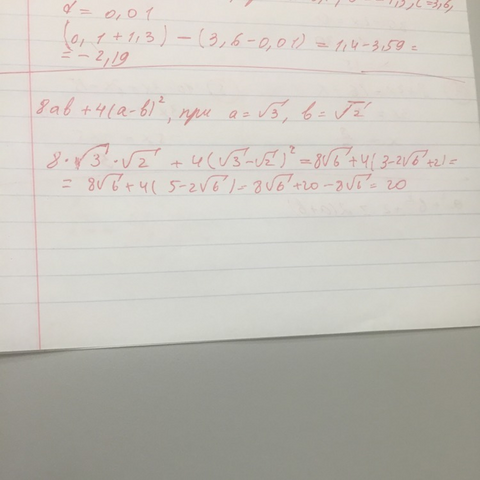 = 1,3, c=3,6,
d = 0,01
(0,1+1,3) - (3,6-0,01) = 1,4-3,59 =
= -2,19
8ab + 4(a-b)², при a = √3, b = √2
8·√3·√2 + 4(√3-√2)² = 8√6+4(3-2√6+2) =
= 8√6+4(5-2√6) = 8√6+20-8√6 = 20